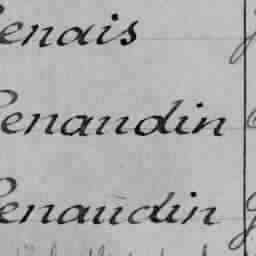 Renais
Renaudin
Renaudin